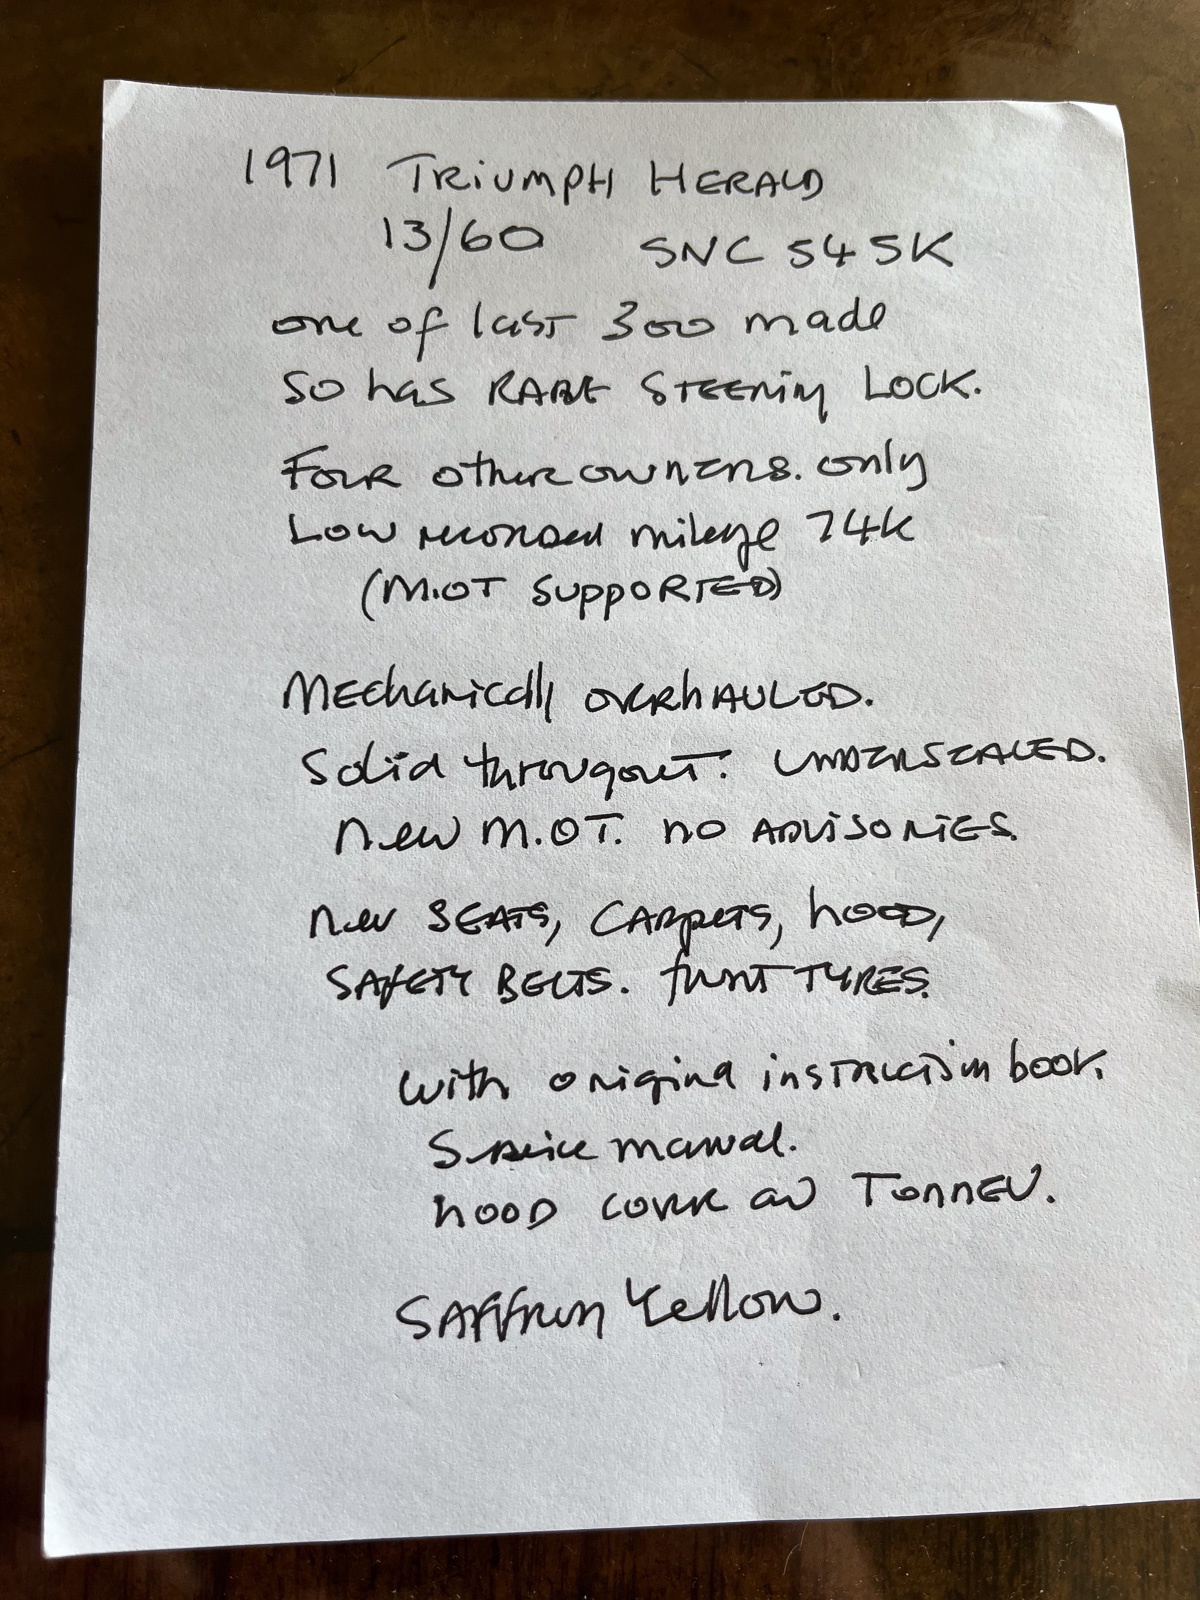 1971 TRIUMPH HERALD
13/60 SNC 545K
one of last 300 made
So has RARE STEERING LOCK.
FOUR other owners. only
Low recorded mileage 74K
(M.OT SUPPORTED)
MEchanically OVERHAULED.
Solid througout. UNDERSEALED.
New M.OT. no ADVISORIES.
New SEATS, CARPETS, HOOD,
SAFETY BELTS. FRONT TYRES.
with original instruction book.
Service manual.
HOOD COVER and TONNEU.
SAFFRON Yellow.